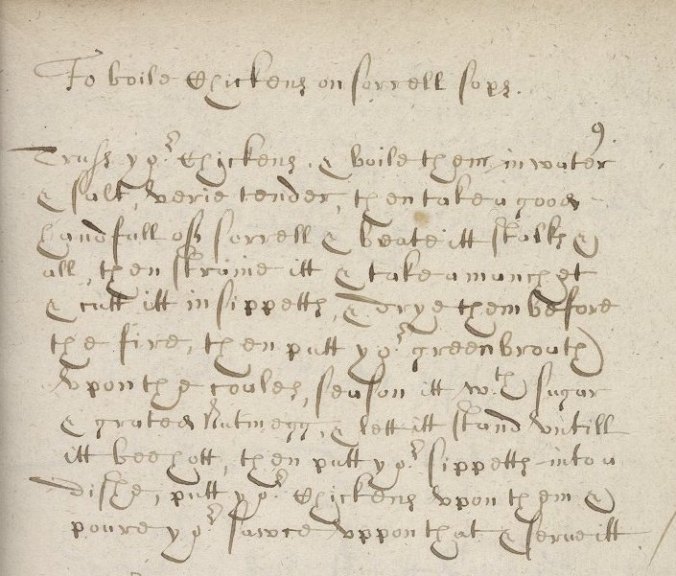 To boile Chickens on sorrell sops.
Truss yor. Chickens, & boile them in water
& salt, verie tender, then take a good
handfull off sorrell & beate itt stalks &
all, then straine itt & take a manchet
& cutt itt in sippetts, & drye them before
the fire, then putt yor. green broath
vpon the coales, season itt wth. sugar
& grated Nutmegg, & lett itt stand vntill
itt bee hott, then putt yor. sippetts into a
dishe, putt yor. Chickens vpon them &
poure yor. sawce vppon that & serue itt